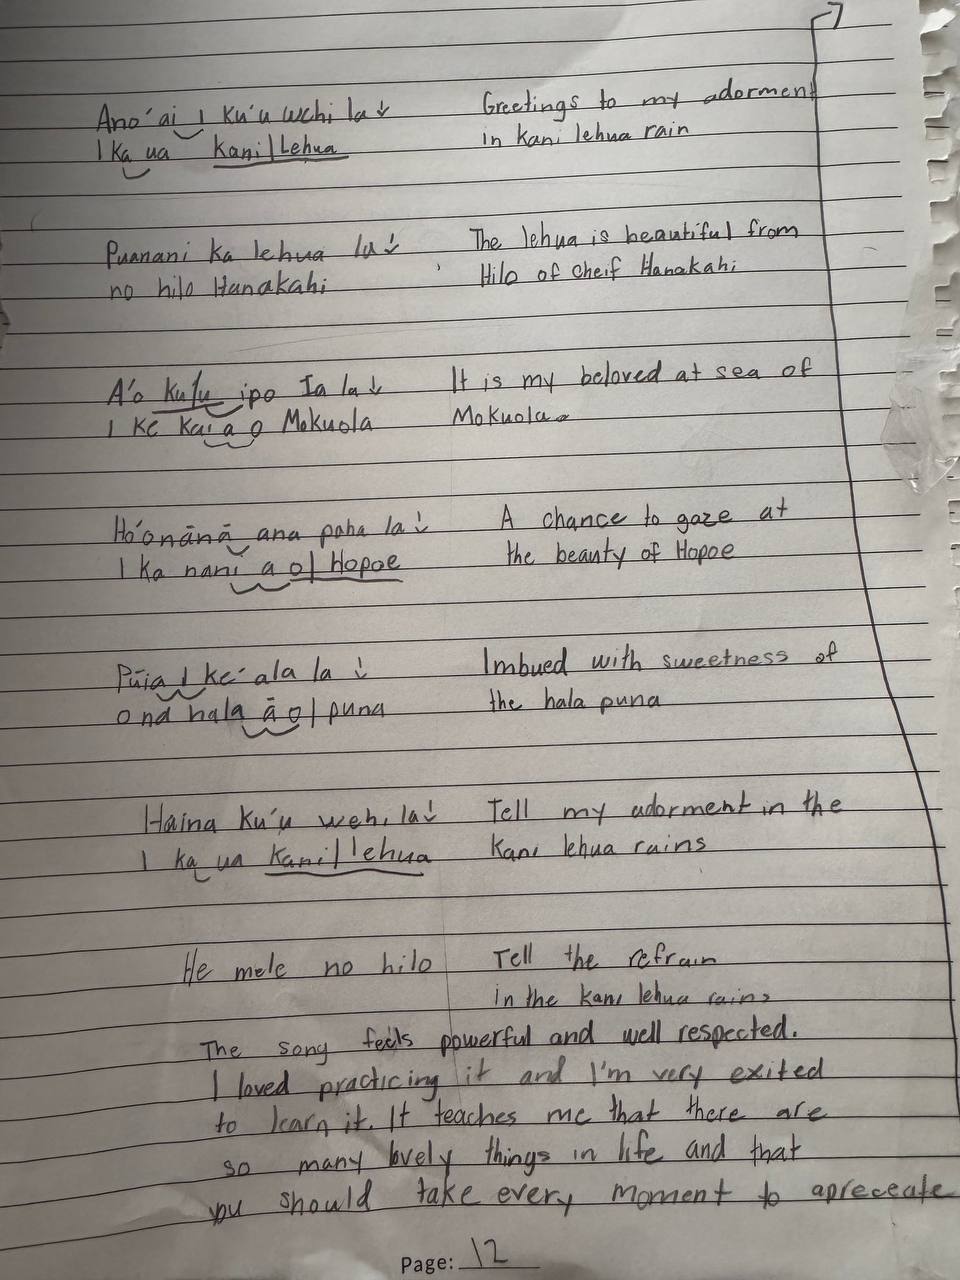 Ano'ai I Ku'u wehi la ↓
I Ka ua Kani|Lehua
Greetings to my adorment
in kani lehua rain
Puanani Ka lehua la ↓
no hilo Hanakahi
The lehua is beautiful from
Hilo of cheif Hanakahi
A'o Ku/u ipo Ia la ↓
I Ke Kai a o Mokuola
It is my beloved at sea of
Mokuola
Ho'onānā ana paha la ↓
I Ka nani a o| Hopoe
A chance to gaze at
the beauty of Hopoe
Pūia I ke'ala la ↓
O na hala ā o| puna
Imbued with sweetness of
the hala puna
Haina Ku'u wehi la ↓
I ka ua Kani|lehua
Tell my adorment in the
Kani lehua rains
He mele no hilo
Tell the refrain
in the kani lehua rains
The song feels powerful and well respected.
I loved practicing it and I'm very exited
to learn it. It teaches me that there are
so many lovely things in life and that
you should take every moment to apreceate
Page: 12